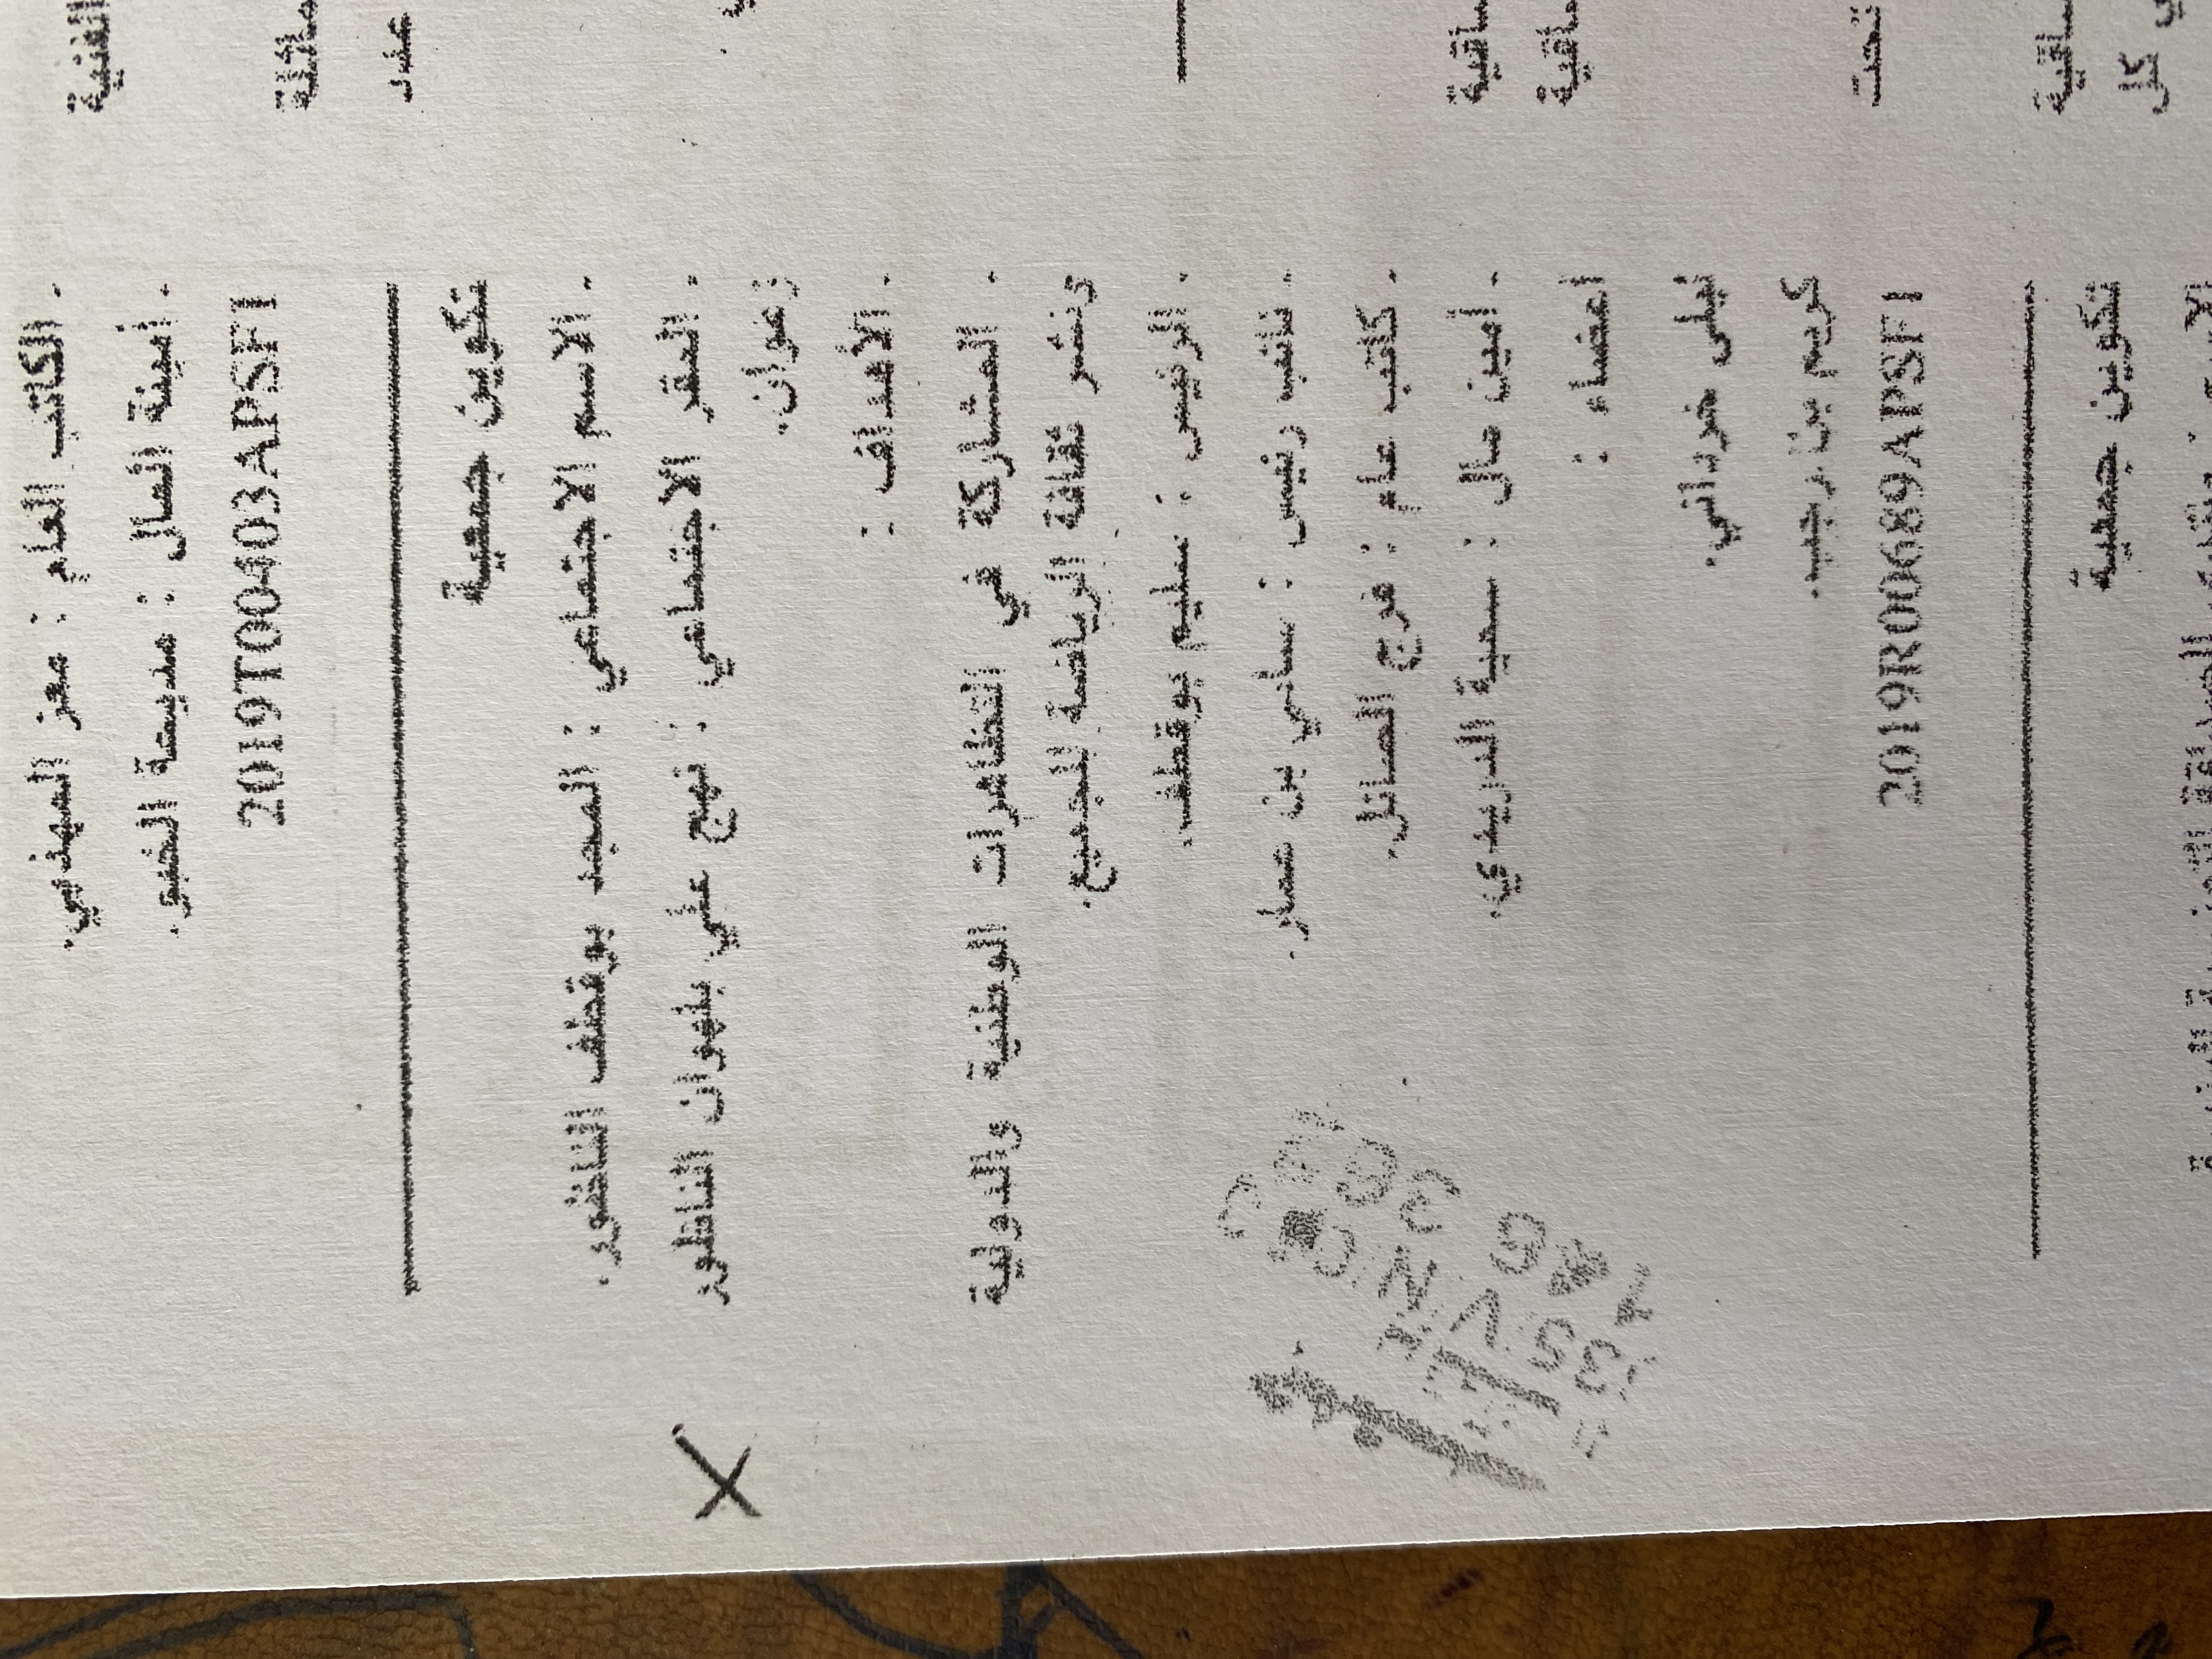 . الكاتب العام : معز المهذبي.
. أمينة المال :
2019T00403APSF1
تكوين جمعية
. الاسم الاجتماعي : المجد بوقطف الناظور.
. المقر الاجتماعي : نهج علي بلهوان الناظور
زغوان.
. الأهداف :
. المشاركة في التظاهرات الوطنية والدولية
ونشر ثقافة الرياضة للجميع.
. الرئيس : سليم بوقطف.
. نائب رئيس : سامي بن عمار.
. كاتب عام : فرج الصائل.
. أمين مال : سمية الدريدي.
أعضاء :
ليلى خرداني.
كريم بن رجب.
2019R00689APSF1
تكوين جمعية
الفنية
ماثلة
عدد
ساقية
ساقية
تحت
ساقية
كل